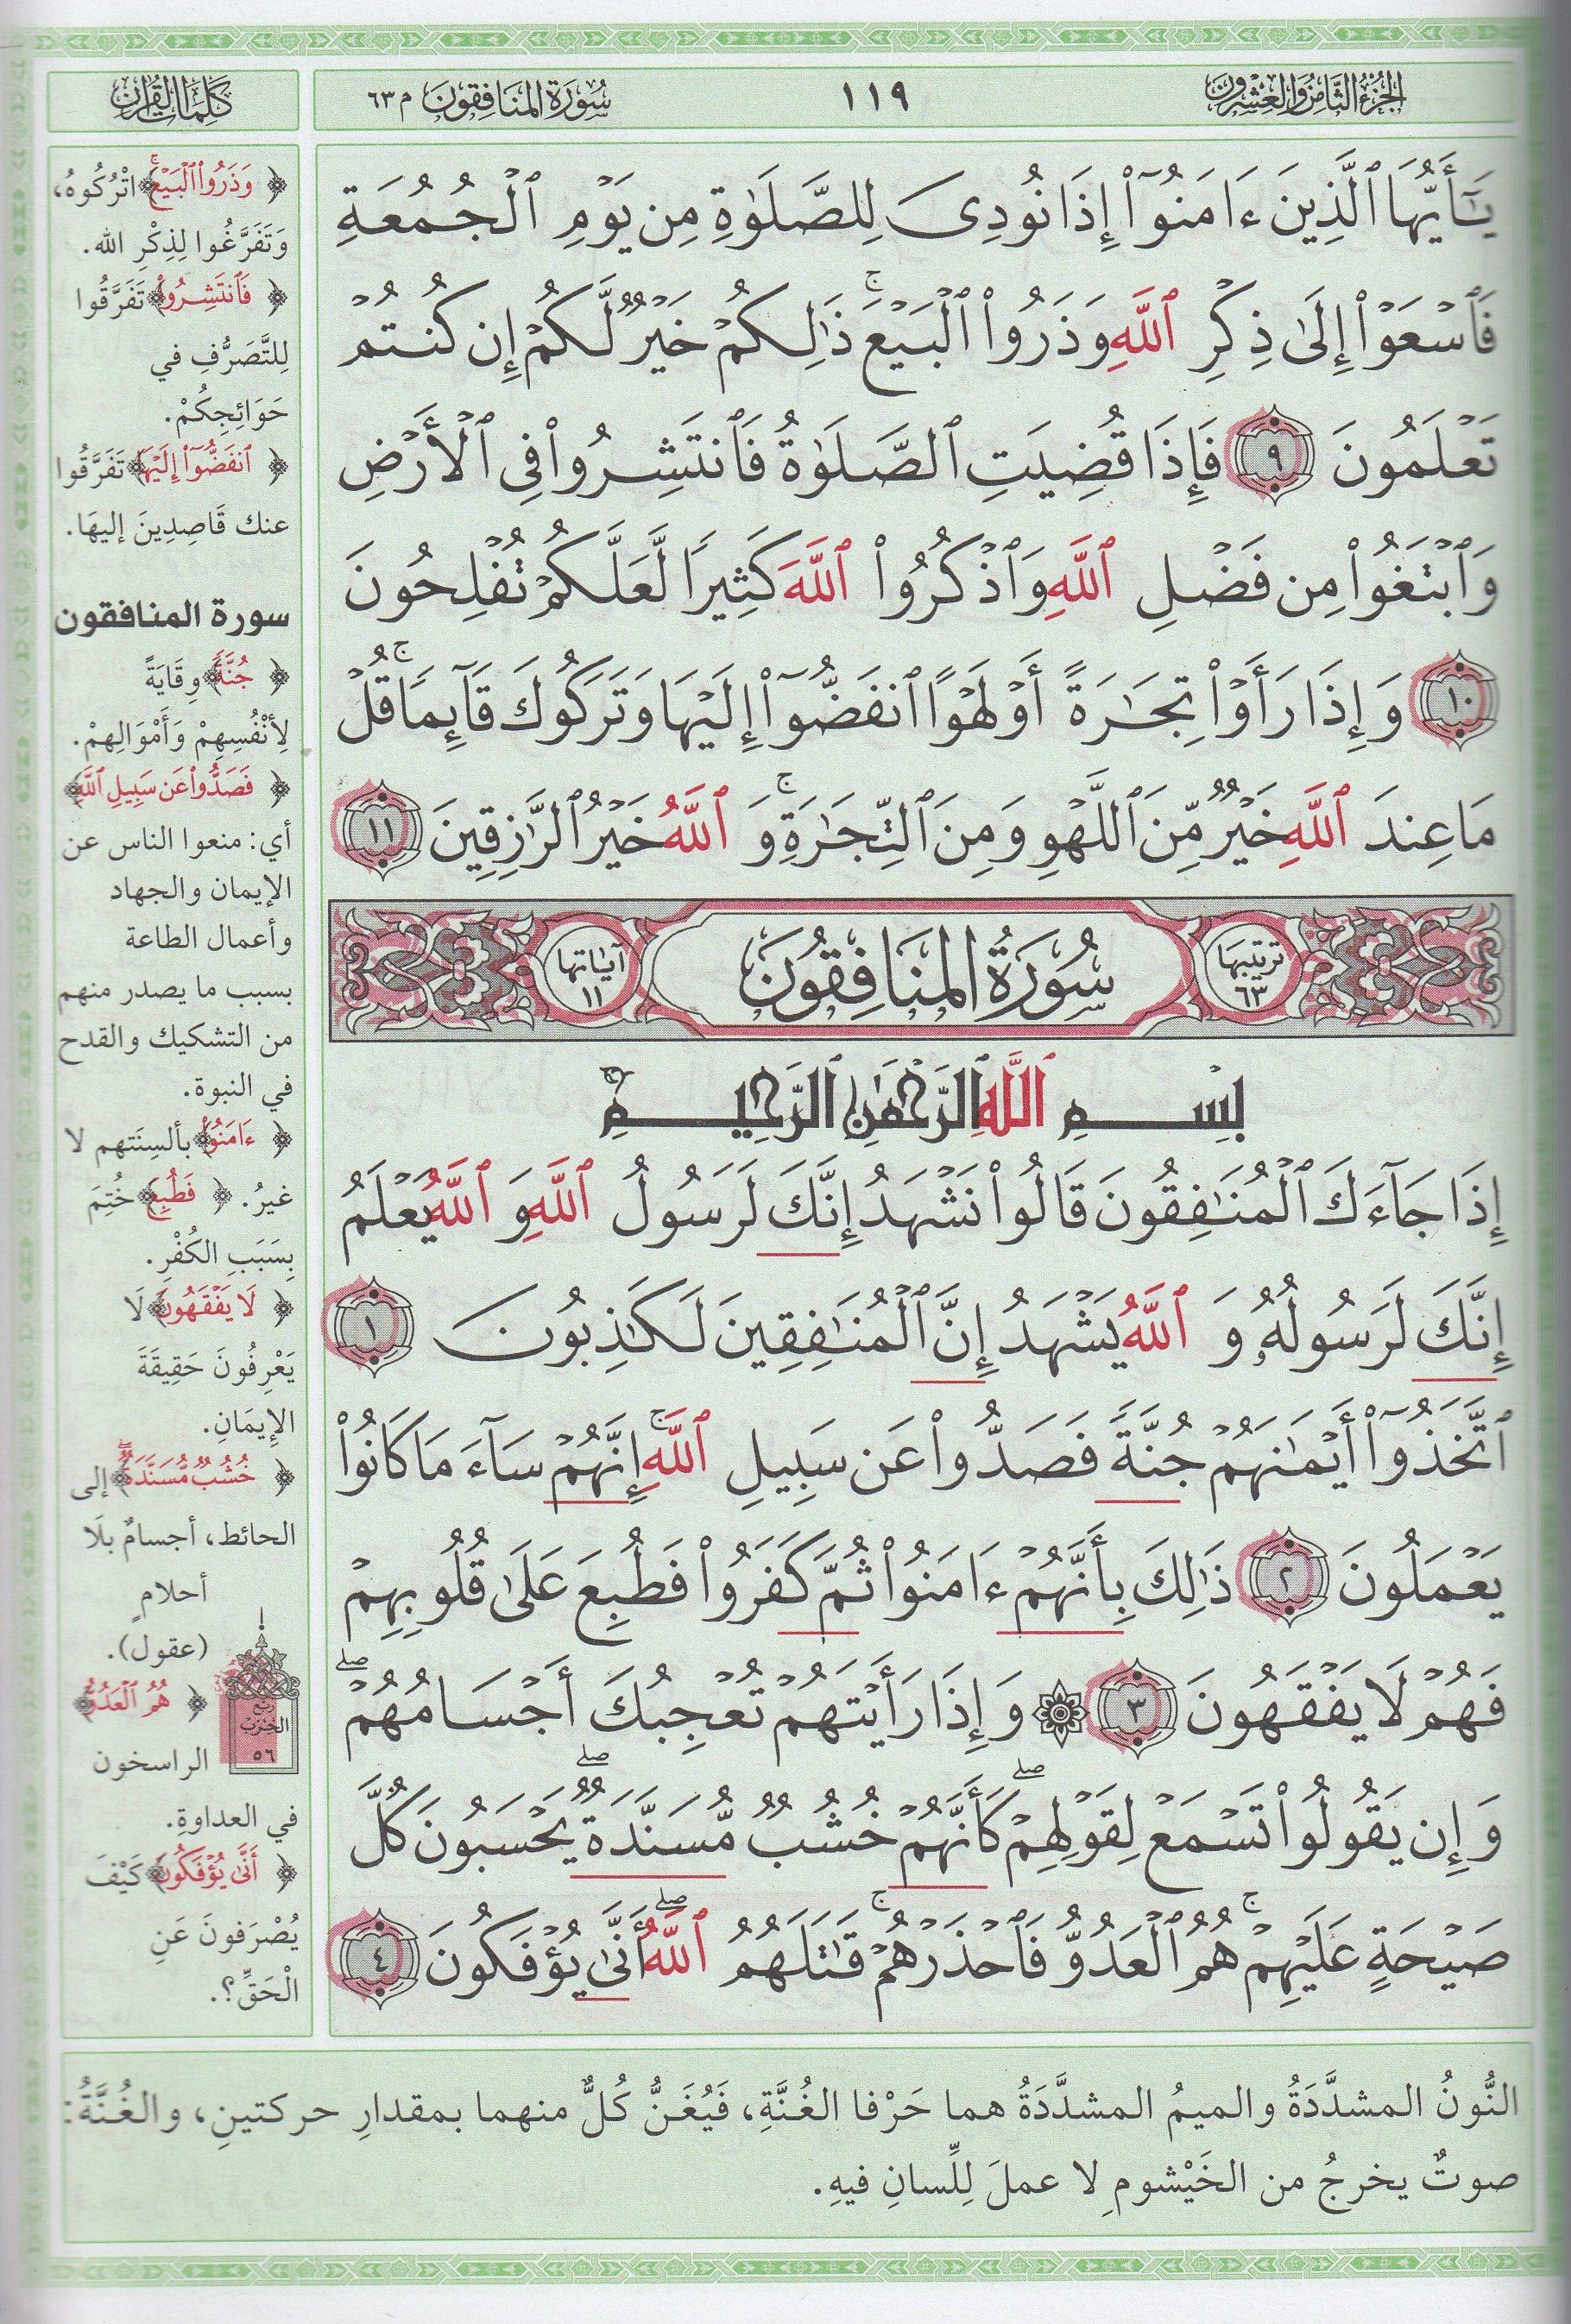 الجزء الثامن والعشرون
١١٩
سُورَةُ المنَافِقُونَ م ٦٣
كَلِمَاتُ القُرآن
يَٰٓأَيُّهَا ٱلَّذِينَ ءَامَنُوٓا۟ إِذَا نُودِىَ لِلصَّلَوٰةِ مِن يَوْمِ ٱلْجُمُعَةِ
فَٱسْعَوْا۟ إِلَىٰ ذِكْرِ ٱللَّهِ وَذَرُوا۟ ٱلْبَيْعَ ۚ ذَٰلِكُمْ خَيْرٌ لَّكُمْ إِن كُنتُمْ
تَعْلَمُونَ ٩ فَإِذَا قُضِيَتِ ٱلصَّلَوٰةُ فَٱنتَشِرُوا۟ فِى ٱلْأَرْضِ
وَٱبْتَغُوا۟ مِن فَضْلِ ٱللَّهِ وَٱذْكُرُوا۟ ٱللَّهَ كَثِيرًا لَّعَلَّكُمْ تُفْلِحُونَ
١٠ وَإِذَا رَأَوْا۟ تِجَٰرَةً أَوْ لَهْوًا ٱنفَضُّوٓا۟ إِلَيْهَا وَتَرَكُوكَ قَآئِمًا ۚ قُلْ
مَا عِندَ ٱللَّهِ خَيْرٌ مِّنَ ٱللَّهْوِ وَمِنَ ٱلتِّجَٰرَةِ ۚ وَٱللَّهُ خَيْرُ ٱلرَّٰزِقِينَ ١١
ترتيبها ٦٣
سُورَةُ المنَافِقُونَ
آياتها ١١
بِسْمِ ٱللَّهِ ٱلرَّحْمَٰنِ ٱلرَّحِيمِ
إِذَا جَآءَكَ ٱلْمُنَٰفِقُونَ قَالُوا۟ نَشْهَدُ إِنَّكَ لَرَسُولُ ٱللَّهِ وَٱللَّهُ يَعْلَمُ
إِنَّكَ لَرَسُولُهُۥ وَٱللَّهُ يَشْهَدُ إِنَّ ٱلْمُنَٰفِقِينَ لَكَٰذِبُونَ ١
ٱتَّخَذُوٓا۟ أَيْمَٰنَهُمْ جُنَّةً فَصَدُّوا۟ عَن سَبِيلِ ٱللَّهِ ۚ إِنَّهُمْ سَآءَ مَا كَانُوا۟
يَعْمَلُونَ ٢ ذَٰلِكَ بِأَنَّهُمْ ءَامَنُوا۟ ثُمَّ كَفَرُوا۟ فَطُبِعَ عَلَىٰ قُلُوبِهِمْ
فَهُمْ لَا يَفْقَهُونَ ٣ ۞ وَإِذَا رَأَيْتَهُمْ تُعْجِبُكَ أَجْسَامُهُمْ ۖ
وَإِن يَقُولُوا۟ تَسْمَعْ لِقَوْلِهِمْ ۖ كَأَنَّهُمْ خُشُبٌ مُّسَنَّدَةٌ ۖ يَحْسَبُونَ كُلَّ
صَيْحَةٍ عَلَيْهِمْ ۚ هُمُ ٱلْعَدُوُّ فَٱحْذَرْهُمْ ۚ قَٰتَلَهُمُ ٱللَّهُ ۖ أَنَّىٰ يُؤْفَكُونَ ٤
﴿وَذَرُوا۟ ٱلْبَيْعَ ۚ﴾ اتْرُكُوهُ،
وَتَفَرَّغُوا لِذِكْرِ الله.
﴿فَٱنتَشِرُوا۟﴾ تَفَرَّقُوا
لِلتَّصَرُّفِ في
حَوَائِجِكُمْ.
﴿ٱنفَضُّوٓا۟ إِلَيْهَا﴾ تَفَرَّقُوا
عنك قَاصِدِينَ إليهَا.
سورة المنافقون
﴿جُنَّةً﴾ وِقَايَةً
لِأَنْفُسِهِمْ وَأَمْوَالِهِمْ.
﴿فَصَدُّوا۟ عَن سَبِيلِ ٱللَّهِ﴾
أي: منعوا الناس عن
الإيمان والجهاد
وأعمال الطاعة
بسبب ما يصدر منهم
من التشكيك والقدح
في النبوة.
﴿ءَامَنُوا۟﴾ بألسِنَتهم لا
غيرُ. ﴿فَطُبِعَ﴾ خُتِمَ
بِسَبَبِ الكُفْرِ.
﴿لَا يَفْقَهُونَ﴾ لَا
يَعْرِفُونَ حَقِيقَةَ
الإِيمَانِ.
﴿خُشُبٌ مُّسَنَّدَةٌ ۖ﴾ إلى
الحائط، أجسامٌ بلَا
أحلامٍ
(عقول).
﴿هُمُ ٱلْعَدُوُّ﴾
الراسخون
في العداوةِ.
﴿أَنَّىٰ يُؤْفَكُونَ﴾ كَيْفَ
يُصْرَفونَ عَنِ
الْحَقِّ؟.
ربع
الحزب
٥٦
النُّونُ المشدَّدَةُ والميمُ المشدَّدَةُ هما حَرْفا الغُنَّةِ، فَيُغَنُّ كُلٌّ منهما بمقدارِ حركتينِ، والغُنَّةُ:
صوتٌ يخرجُ من الخَيْشومِ لا عملَ لِلِّسانِ فيهِ.